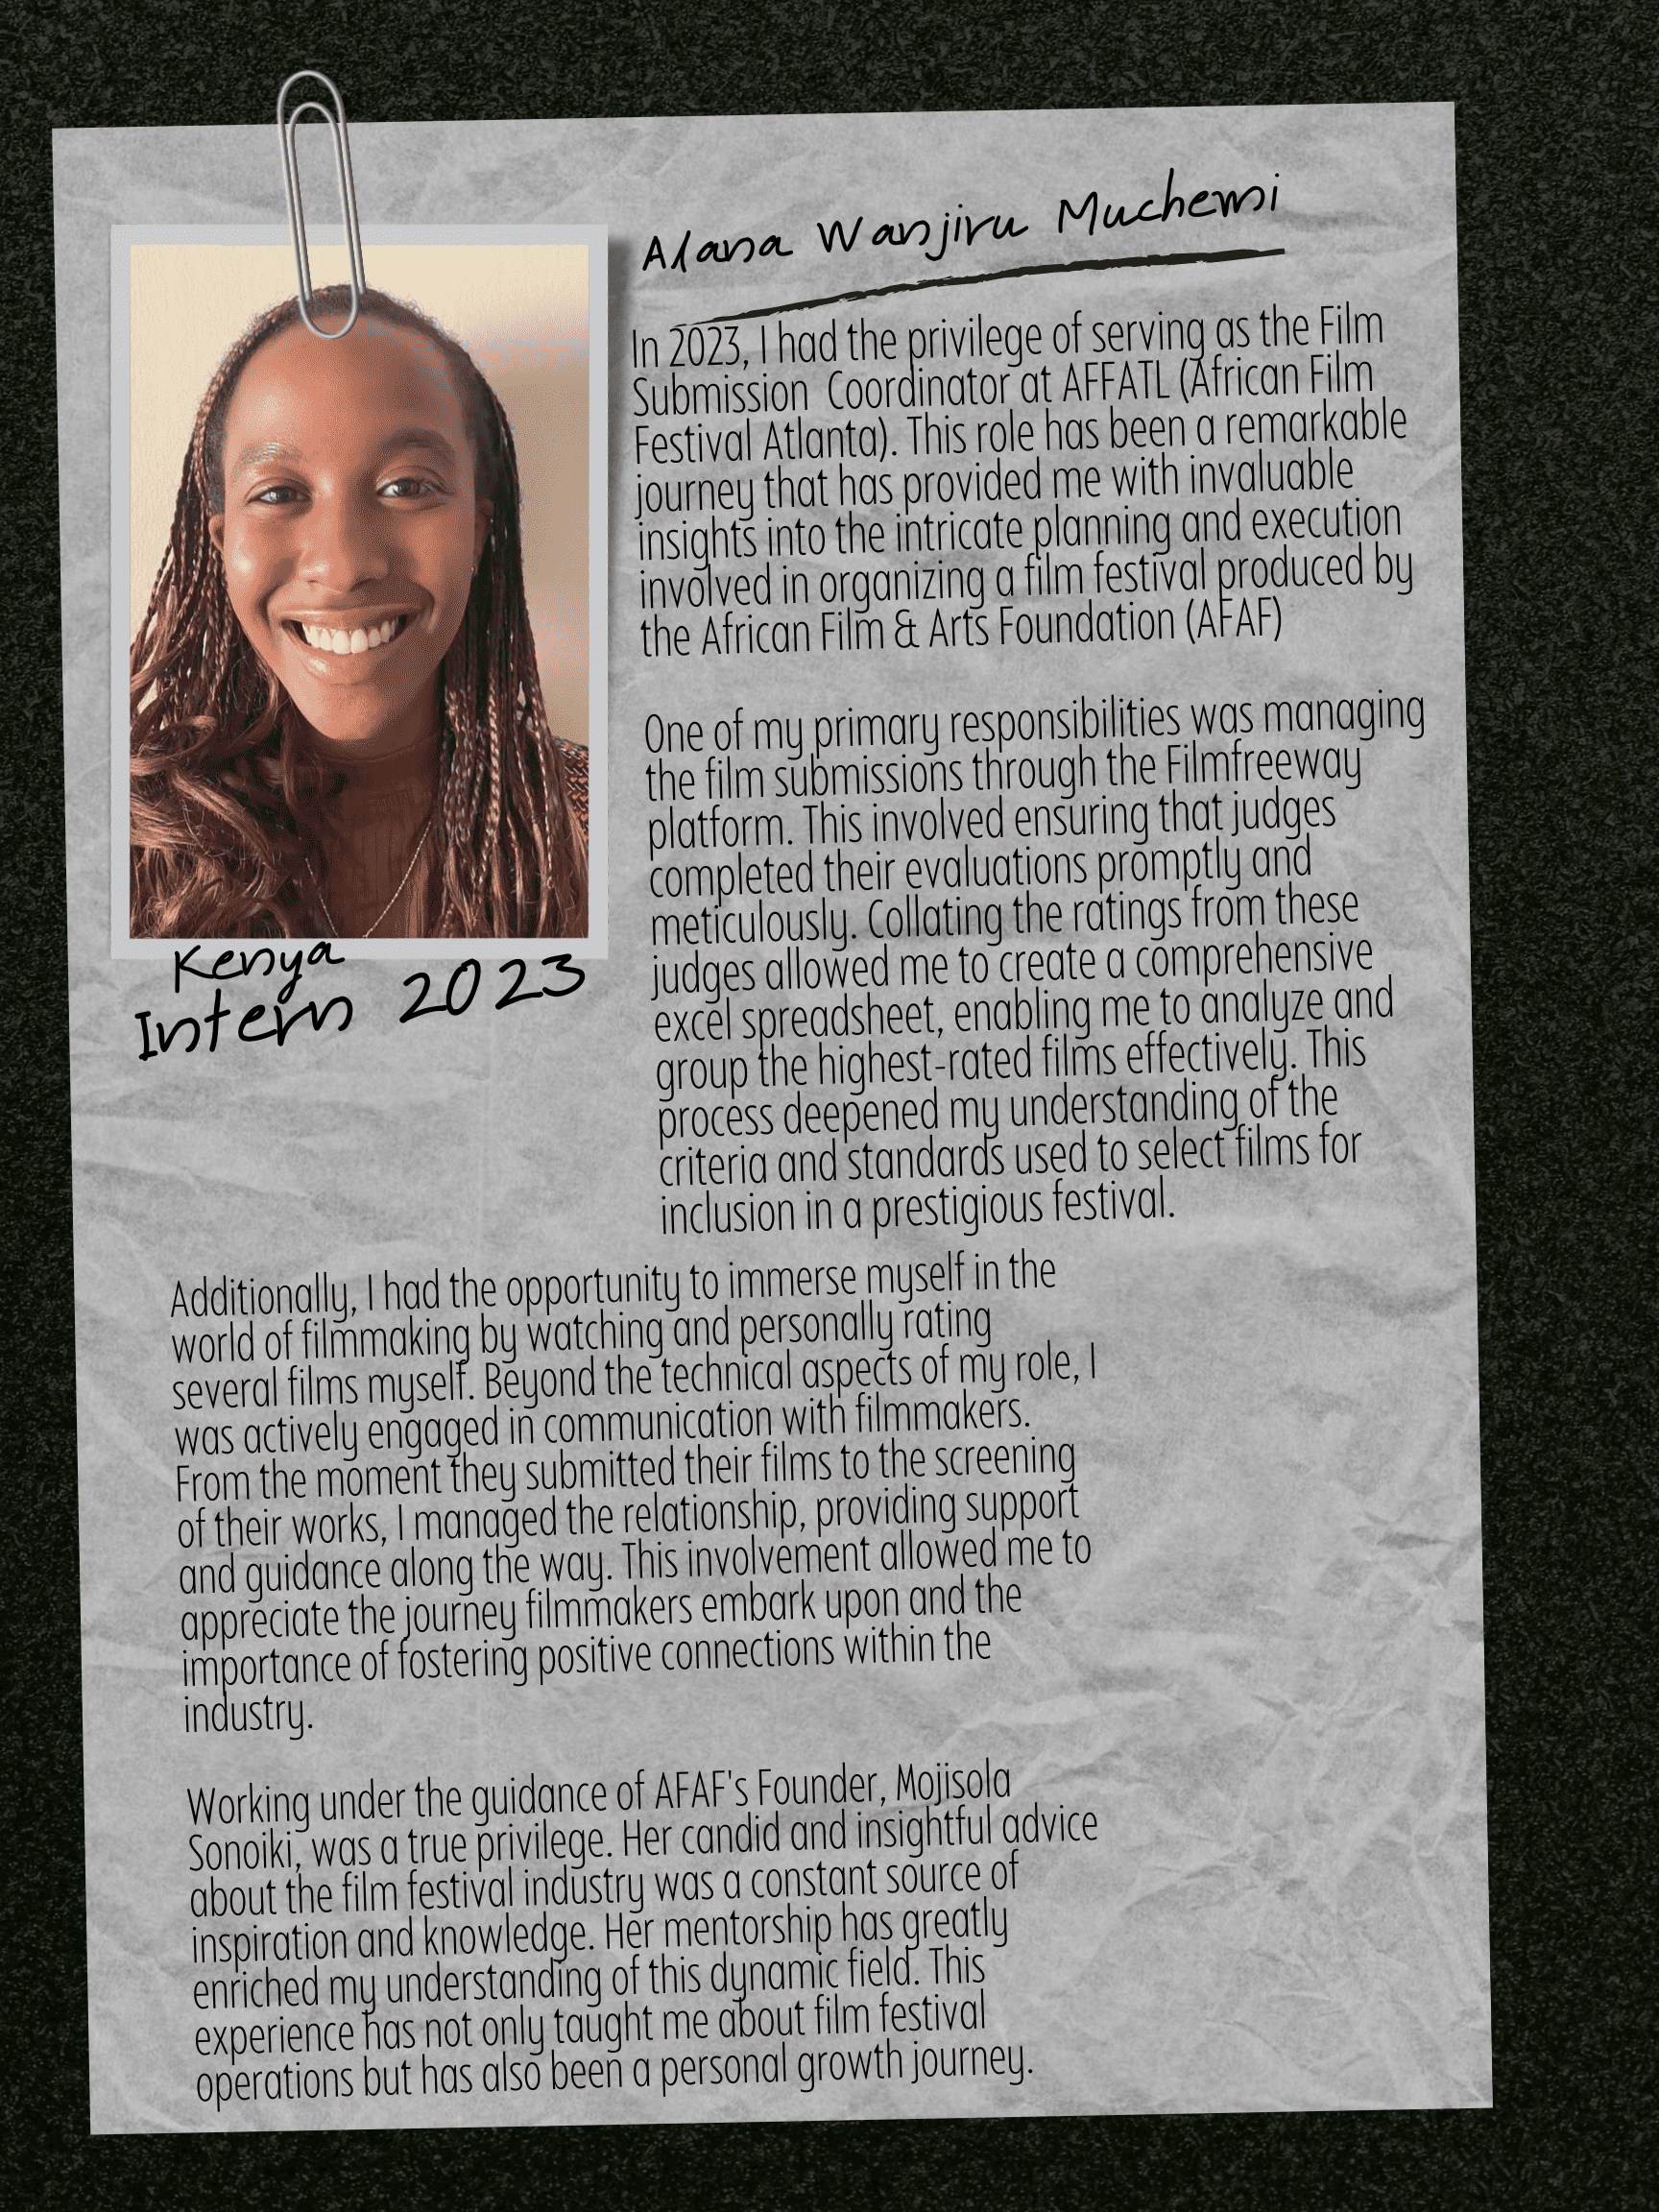 Alana Wanjiru Muchemi
In 2023, I had the privilege of serving as the Film
Submission Coordinator at AFFATL (African Film
Festival Atlanta). This role has been a remarkable
journey that has provided me with invaluable
insights into the intricate planning and execution
involved in organizing a film festival produced by
the African Film & Arts Foundation (AFAF)
One of my primary responsibilities was managing
the film submissions through the Filmfreeway
platform. This involved ensuring that judges
completed their evaluations promptly and
meticulously. Collating the ratings from these
judges allowed me to create a comprehensive
excel spreadsheet, enabling me to analyze and
group the highest-rated films effectively. This
process deepened my understanding of the
criteria and standards used to select films for
inclusion in a prestigious festival.
Kenya
Intern 2023
Additionally, I had the opportunity to immerse myself in the
world of filmmaking by watching and personally rating
several films myself. Beyond the technical aspects of my role, I
was actively engaged in communication with filmmakers.
From the moment they submitted their films to the screening
of their works, I managed the relationship, providing support
and guidance along the way. This involvement allowed me to
appreciate the journey filmmakers embark upon and the
importance of fostering positive connections within the
industry.
Working under the guidance of AFAF's Founder, Mojisola
Sonoiki, was a true privilege. Her candid and insightful advice
about the film festival industry was a constant source of
inspiration and knowledge. Her mentorship has greatly
enriched my understanding of this dynamic field. This
experience has not only taught me about film festival
operations but has also been a personal growth journey.